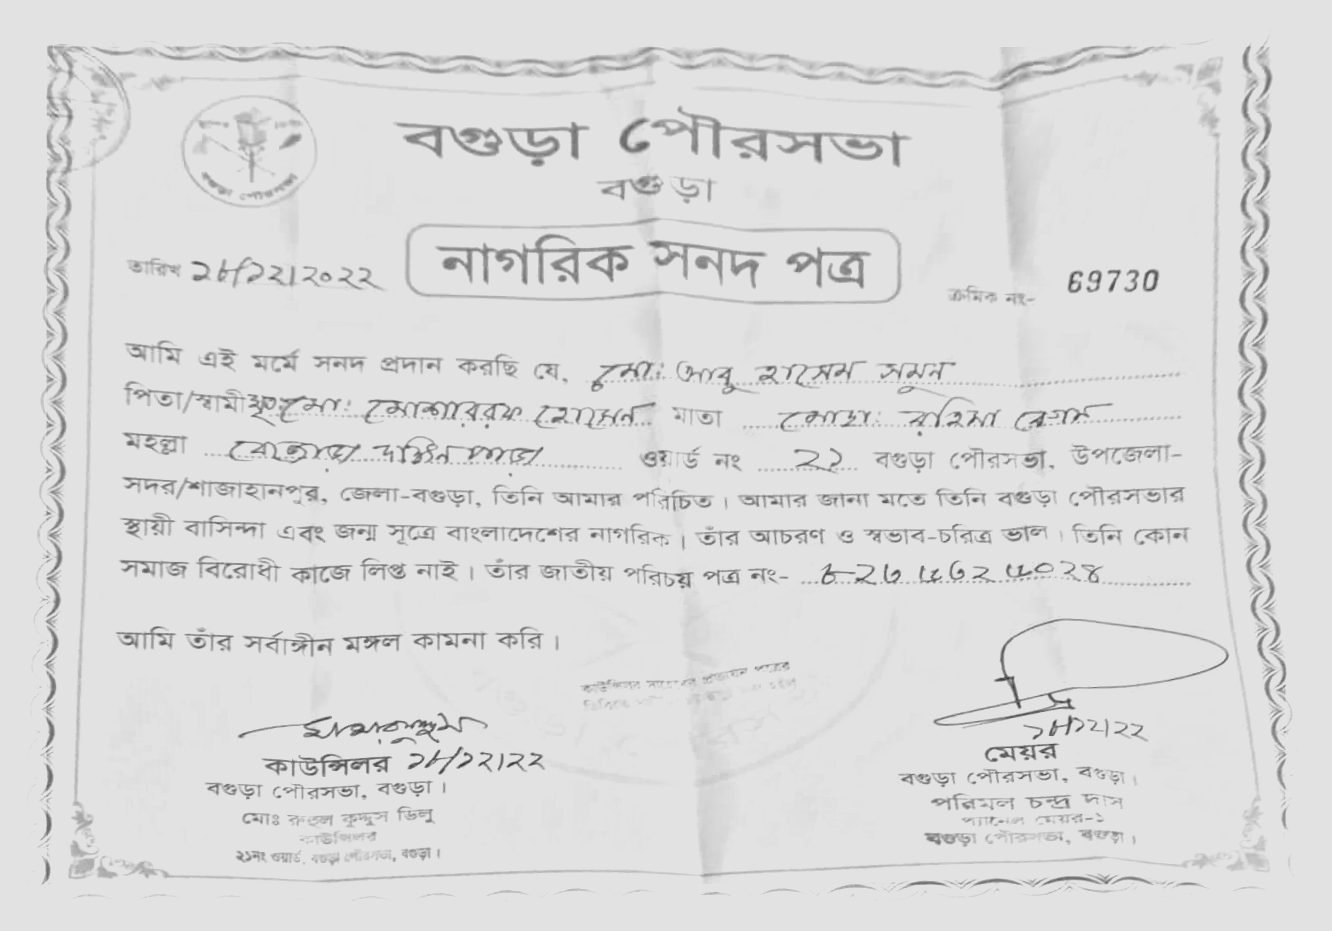 বগুড়া পৌরসভা
বগুড়া পৌরসভা
বগুড়া
নাগরিক সনদ পত্র
তারিখ ২৮/১২/২০২২
ক্রমিক নং- 69730
আমি এই মর্মে সনদ প্রদান করছি যে, মো: আবু হাসেম সুমন
পিতা/স্বামী মো: মোশাররফ হোসেন মাতা মোছা: রহিমা বেগম
মহল্লা দক্ষিন পাড়া ওয়ার্ড নং ২১ বগুড়া পৌরসভা, উপজেলা-
সদর/শাজাহানপুর, জেলা-বগুড়া, তিনি আমার পরিচিত। আমার জানা মতে তিনি বগুড়া পৌরসভার
স্থায়ী বাসিন্দা এবং জন্ম সূত্রে বাংলাদেশের নাগরিক। তাঁর আচরণ ও স্বভাব-চরিত্র ভাল। তিনি কোন
সমাজ বিরোধী কাজে লিপ্ত নাই। তাঁর জাতীয় পরিচয় পত্র নং-
আমি তাঁর সর্বাঙ্গীন মঙ্গল কামনা করি।
কাউন্সিলর
কাউন্সিলর ২৮/১২/২২
বগুড়া পৌরসভা, বগুড়া।
মোঃ রুহুল কুদ্দুস ডিলু
কাউন্সিলর
২১নং ওয়ার্ড, বগুড়া পৌরসভা, বগুড়া।
২৮/১২/২২
মেয়র
বগুড়া পৌরসভা, বগুড়া।
পরিমল চন্দ্র দাস
প্যানেল মেয়র-১
বগুড়া পৌরসভা, বগুড়া।